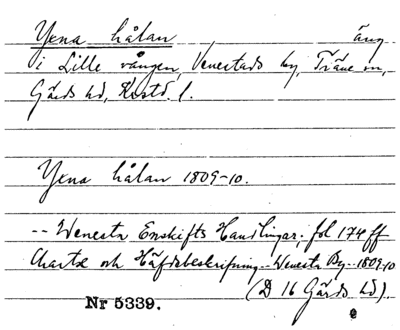 Yxna hålan äng
i Lille vången, Venestads by, Träne sn,
Gärds hd, Krstd. l.
Yxna hålan 1809-10.
-- Wenesta Enskifts Handlingar; fol 174 ff
Charta och Häfdebeskrifning -- Wenesta By -- 1809-10
(D 16 Gärds hd).
Nr 5339. e